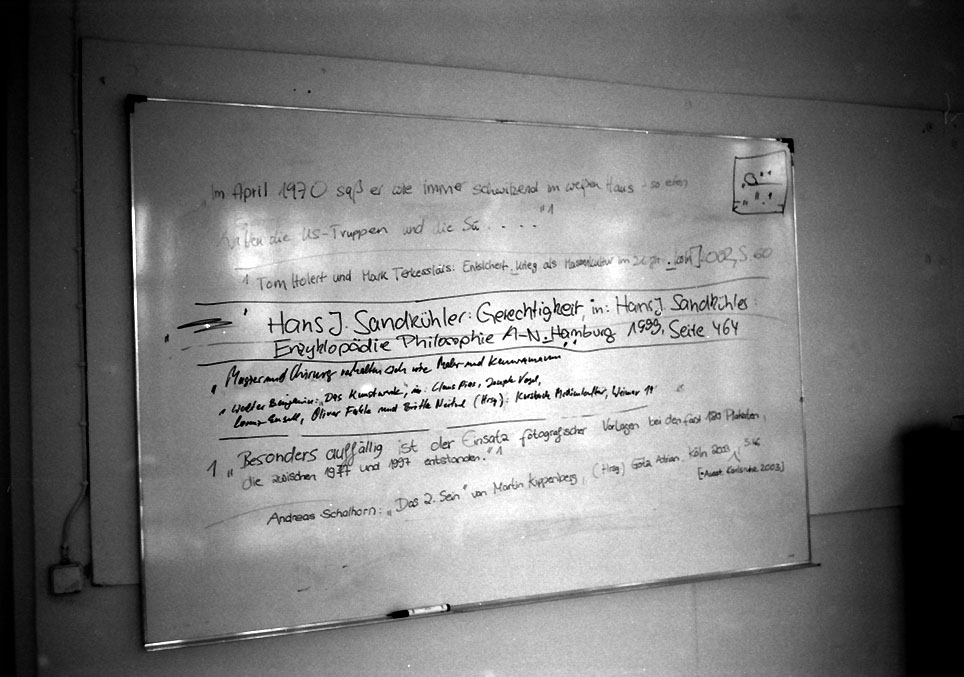 „Im April 1970 saß er wie immer schwitzend im weißen Haus - so
haben die US-Truppen und die Sü . . . . "1
1 Tom Holert und Mark Terkessidis: Entsichert. Krieg als Massenkultur im Köln 2002, S. 60
Hans J. Sandkühler: Gerechtigkeit, in: Hans J. Sandkühler:
Enzyklopädie Philosophie A-N. Hamburg 1999, Seite 464
„ und Chirurg verhalten sich wie Maler und Kameramann
Walter Benjamin: „Das Kunstwerk", in: Claus Pias, Joseph Vogl,
Lorenz Engell, Oliver Fahle und Britta Neitzel (Hrsg): Kursbuch Medienkultur, Weimar
1 „Besonders auffällig ist der Einsatz fotografischer Vorlagen bei den fast 180 Plakaten,
die zwischen 1977 und 1997 entstanden."1
Andreas Schalhorn: „Das 2. Sein" von Martin Kippenberg, (Hrsg) Götz Adrian. Köln 2003 S.
[Ausst. Karlsruhe 2003]